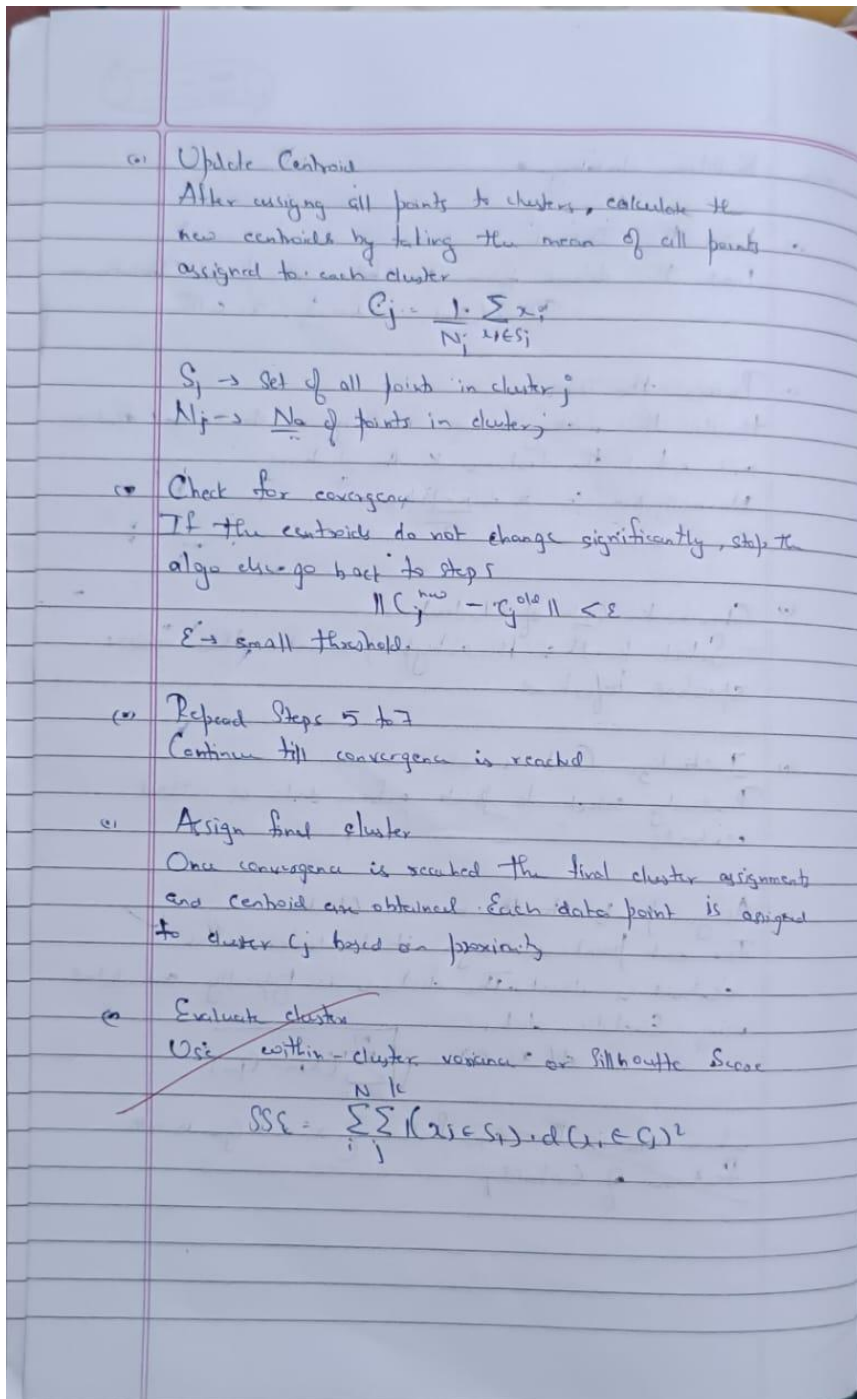 Update Centroid
After assigng all points to clusters, calculate the
new centroids by taking the mean of all points
assigned to each cluster
Cj = 1/Nj . Σ xi∈Sj xi
Sj → Set of all points in cluster j
Nj → No of points in cluster j
Check for covergency
If the centroids do not change significantly, stop the
algo else go back to step 5
|| Cj^new - Cj^old || < ε
ε → small threshold.
Repead Steps 5 to 7
Continue till convergence is reached
Assign final cluster
Once convergence is reached the final cluster assignments
and centroid are obtained. Each data point is assigned
to cluster Cj based on proximity
Evaluate cluster
Use within-cluster variance or Sillhoutte Score
N k
SSE = Σ Σ 1(xj ∈ S).d(xi ∈ Cj)²
i j